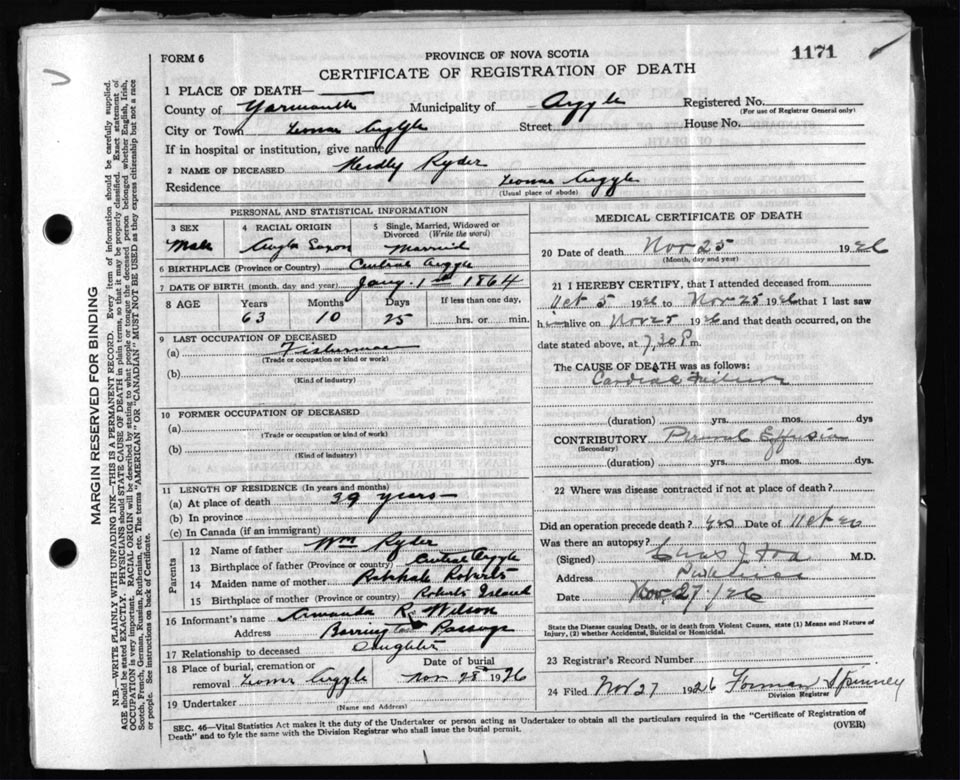 FORM 6
PROVINCE OF NOVA SCOTIA
1171
CERTIFICATE OF REGISTRATION OF DEATH
1 PLACE OF DEATH—
County of Yarmouth Municipality of Argyle Registered No.
(For use of Registrar General only)
City or Town Argyle Street House No.
If in hospital or institution, give name
2 NAME OF DECEASED Hedley Ryder
Residence Argyle
(Usual place of abode)
PERSONAL AND STATISTICAL INFORMATION
3 SEX 4 RACIAL ORIGIN 5 Single, Married, Widowed or
Divorced (Write the word)
Male Anglo Saxon Married
6 BIRTHPLACE (Province or Country) Central Argyle
7 DATE OF BIRTH (month, day and year) Jany. 1st 1864
8 AGE Years Months Days If less than one day,
63 10 25 hrs. or min.
9 LAST OCCUPATION OF DECEASED
(a) Fisherman
(Trade or occupation or kind or work)
(b)
(Kind of industry)
10 FORMER OCCUPATION OF DECEASED
(a)
(Trade or occupation or kind of work)
(b)
(Kind of industry)
11 LENGTH OF RESIDENCE (In years and months)
(a) At place of death 39 years
(b) In province
(c) In Canada (if an immigrant)
Parents
12 Name of father Wm Ryder
13 Birthplace of father (Province or country) Central Argyle
14 Maiden name of mother Roberts
15 Birthplace of mother (Province or country) Roberts Island
16 Informant's name Amanda R. Wilson
Address Barrington Passage
17 Relationship to deceased Daughter
18 Place of burial, cremation or Date of burial
removal Argyle Nov 28 1926
19 Undertaker
(Name and Address)
MEDICAL CERTIFICATE OF DEATH
20 Date of death Nov 25 1926
(Month, day and year)
21 I HEREBY CERTIFY, that I attended deceased from
Oct 5 1926 to Nov 25 1926 that I last saw
h alive on Nov 25 1926 and that death occurred, on the
date stated above, at 7.30 P.m.
The CAUSE OF DEATH was as follows:
Cardiac Failure
(duration) yrs. mos. dys
CONTRIBUTORY Effusion
(Secondary)
(duration) yrs. mos. dys.
22 Where was disease contracted if not at place of death?
Did an operation precede death? yes Date of Oct
Was there an autopsy?
(Signed) Chas J. Fox M.D.
Address
Date Nov. 27/26
State the Disease causing Death, or in death from Violent Causes, state (1) Means and Nature of
Injury, (2) whether Accidental, Suicidal or Homicidal.
23 Registrar's Record Number
24 Filed Nov 27 1926 Forman Spinney
Division Registrar
SEC. 46—Vital Statistics Act makes it the duty of the Undertaker or person acting as Undertaker to obtain all the particulars required in the "Certificate of Registration of
Death" and to fyle the same with the Division Registrar who shall issue the burial permit.
(OVER)
MARGIN RESERVED FOR BINDING
N.B.—WRITE PLAINLY WITH UNFADING INK—THIS IS A PERMANENT RECORD. Every item of information should be carefully supplied.
AGE should be stated EXACTLY. PHYSICIANS should STATE CAUSE OF DEATH in plain terms, so that it may be properly classified. Exact statement of
OCCUPATION is very important. RACIAL ORIGIN will be described by stating to what people or tongue the deceased person belonged whether English, Irish,
Scotch, French, German, Russian, Ruthenian, etc. The terms "AMERICAN" OR "CANADIAN" MUST NOT BE USED as they express citizenship but not a race
or people. See instructions on back of Certificate.